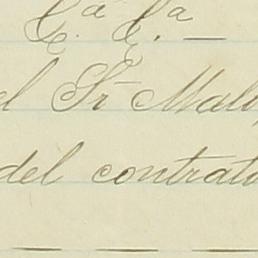 C.ª C.ª —
el Sr Malo
del contrato